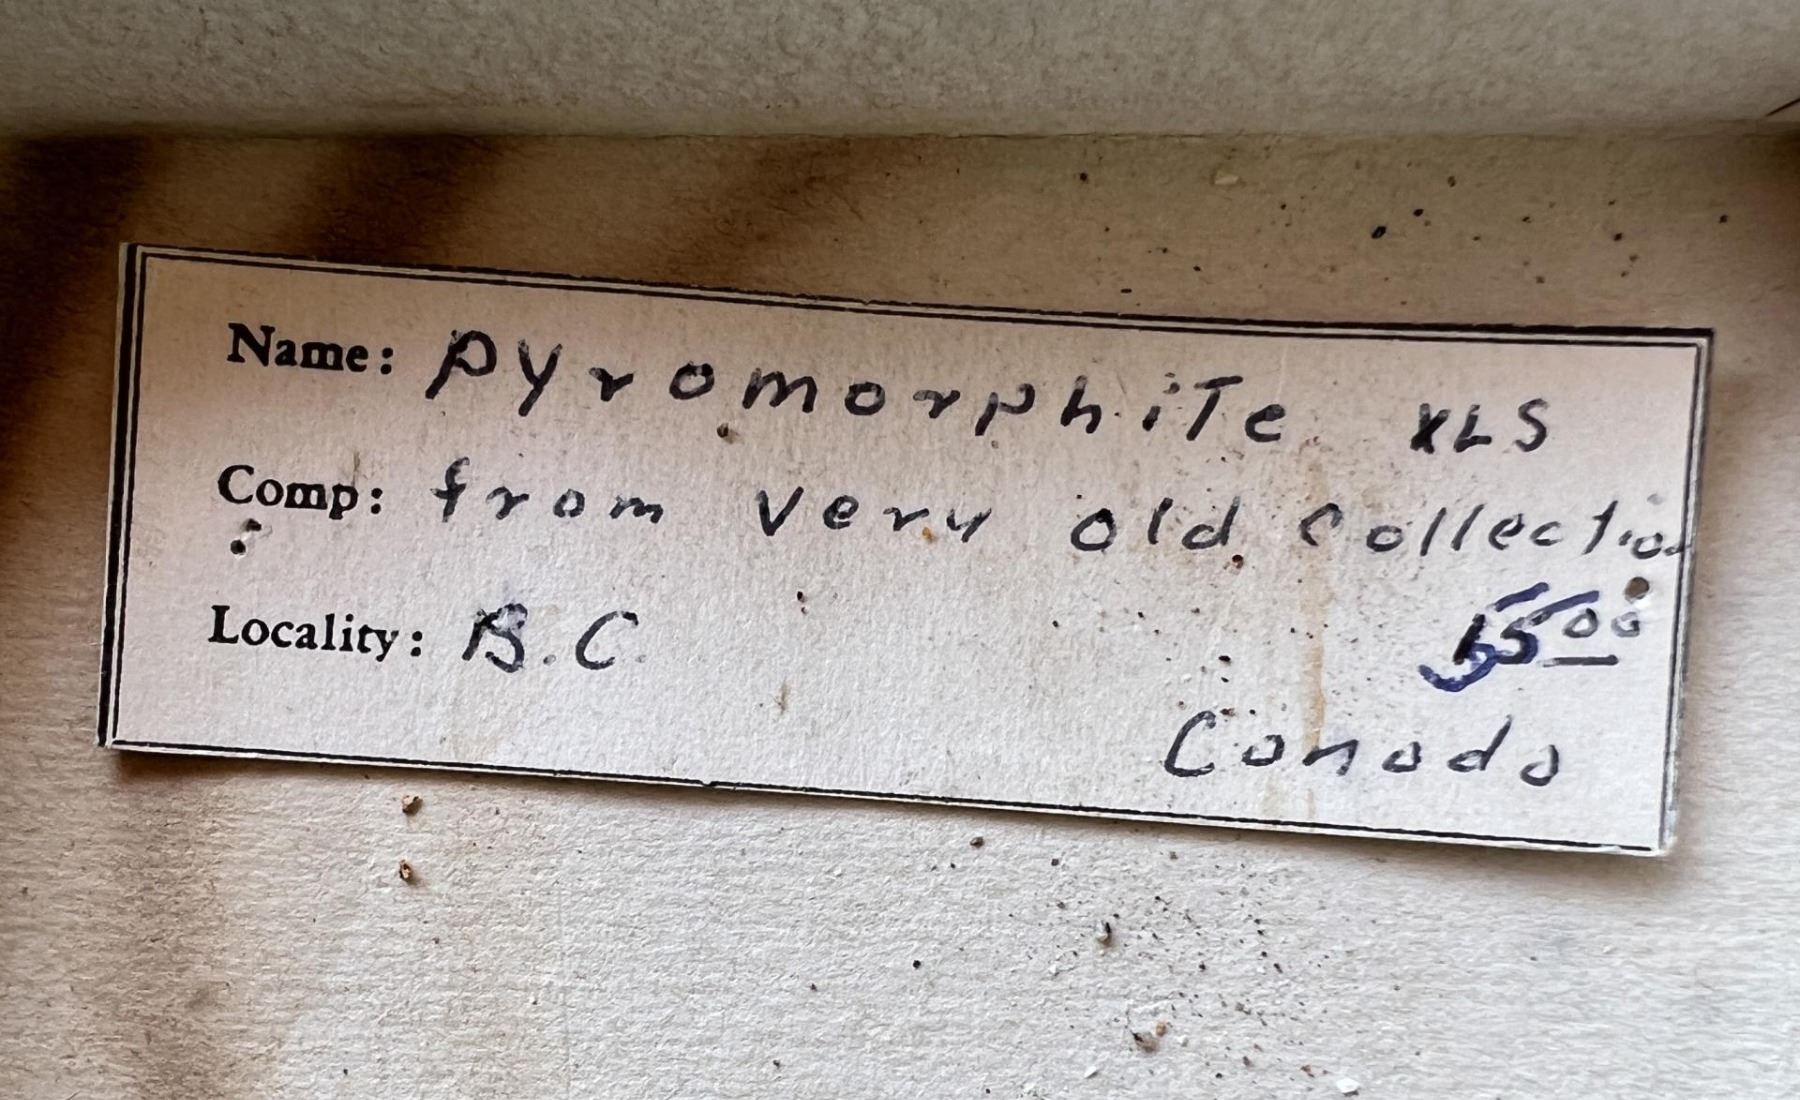 Name: Pyromorphite XLS
Comp: from very old collection
Locality: B.C.
55 00
Canada